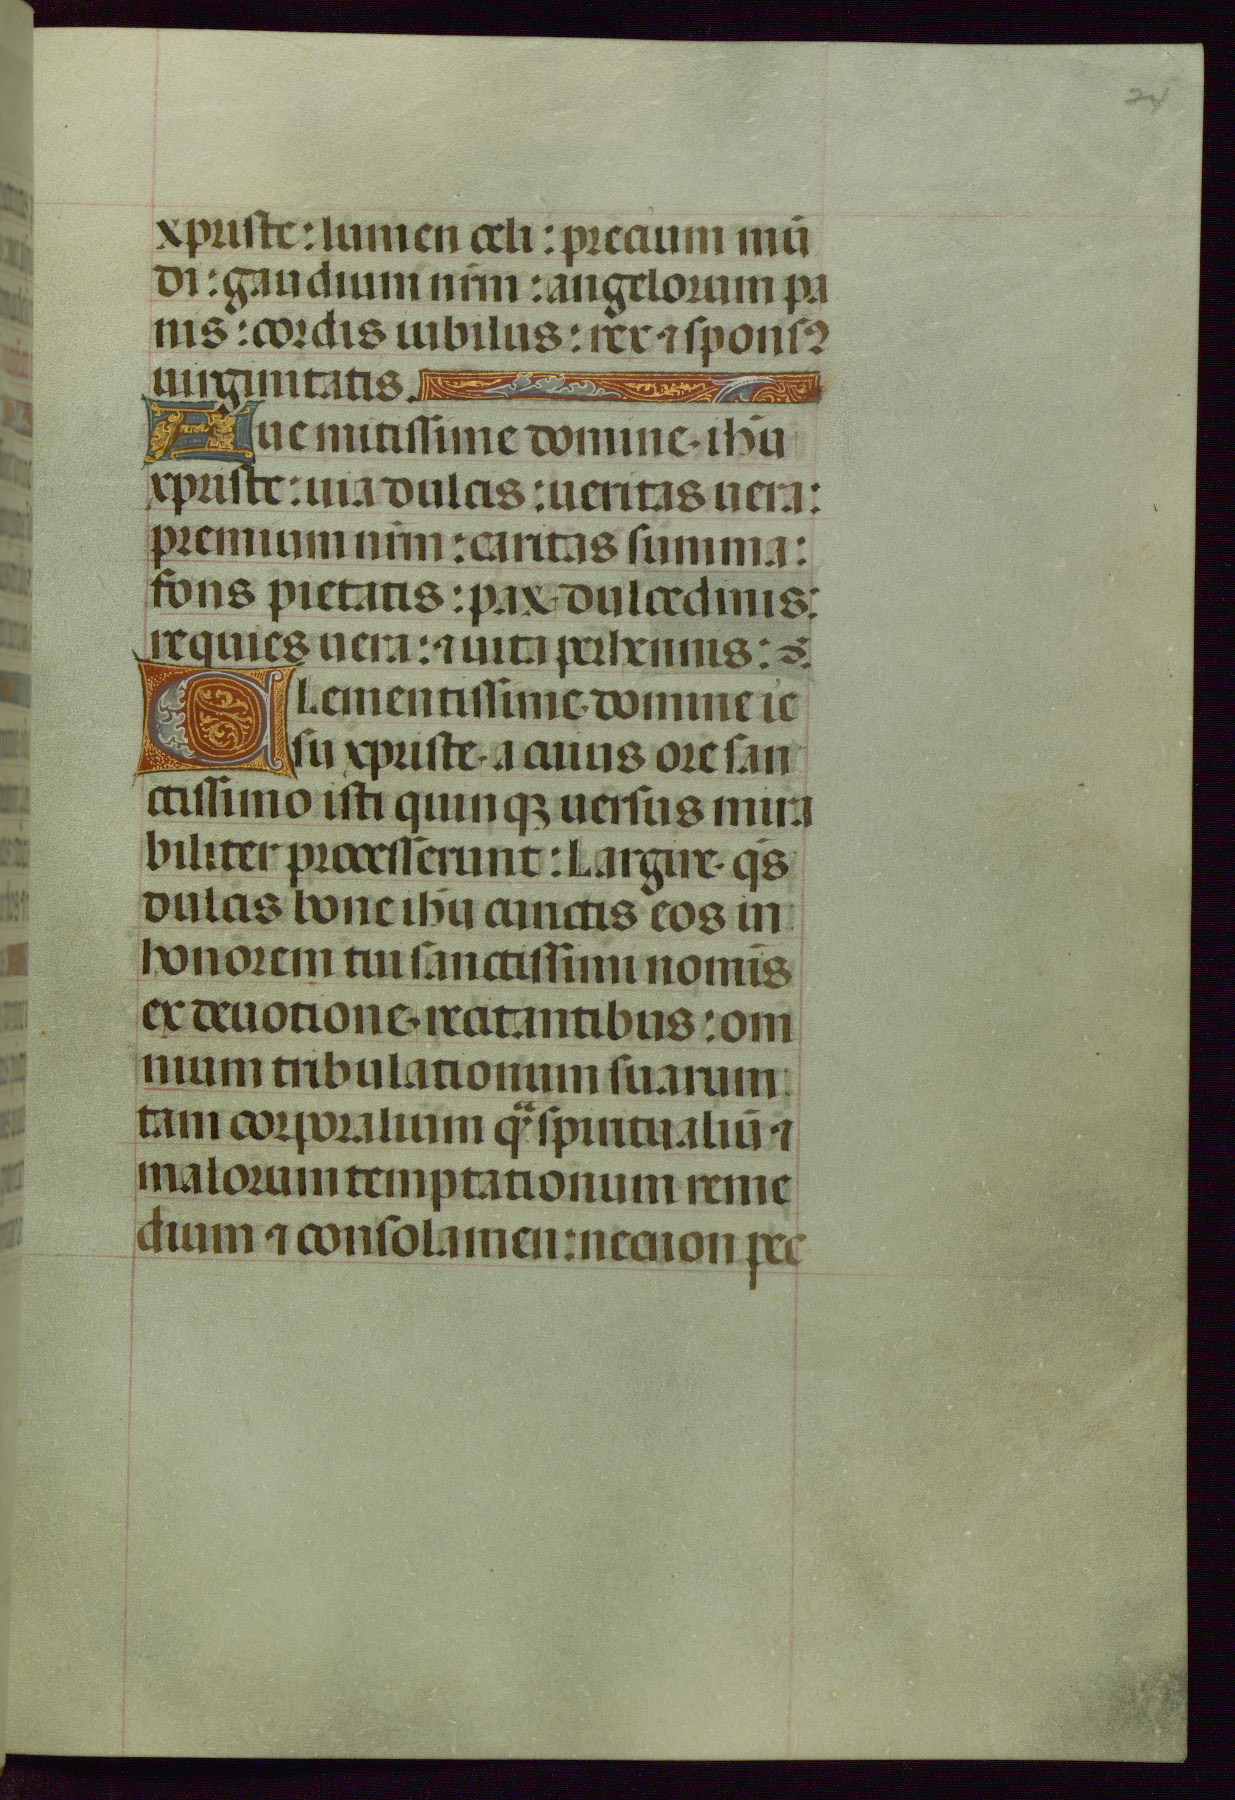 24
xpriste : lumen celi : precium mū
di : gaudium nr̄m : angelorum pa
nis : cordis iubilus : rex ⁊ sponsꝰ
uirginitatis.
Aue mitissime domine · ihū
xpriste : uia dulcis : ueritas uera :
premium nr̄m : caritas summa :
fons pietatis : pax dulcedinis :
requies uera : ⁊ uita perhennis :
Clementissime · domine ie
su xpriste · a cuius ore san
ctissimo isti quinqꝫ uersus mira
biliter processerunt : Largire · q̄s
dulcis bone ihū cunctis eos in
honorem tui sanctissimi nomīs
ex deuotione · recitantibus : om
nium tribulationum suarum
tam corporalium qͣ spiritualiū ⁊
malorum temptationum reme
dium ⁊ consolamen : necnon pec